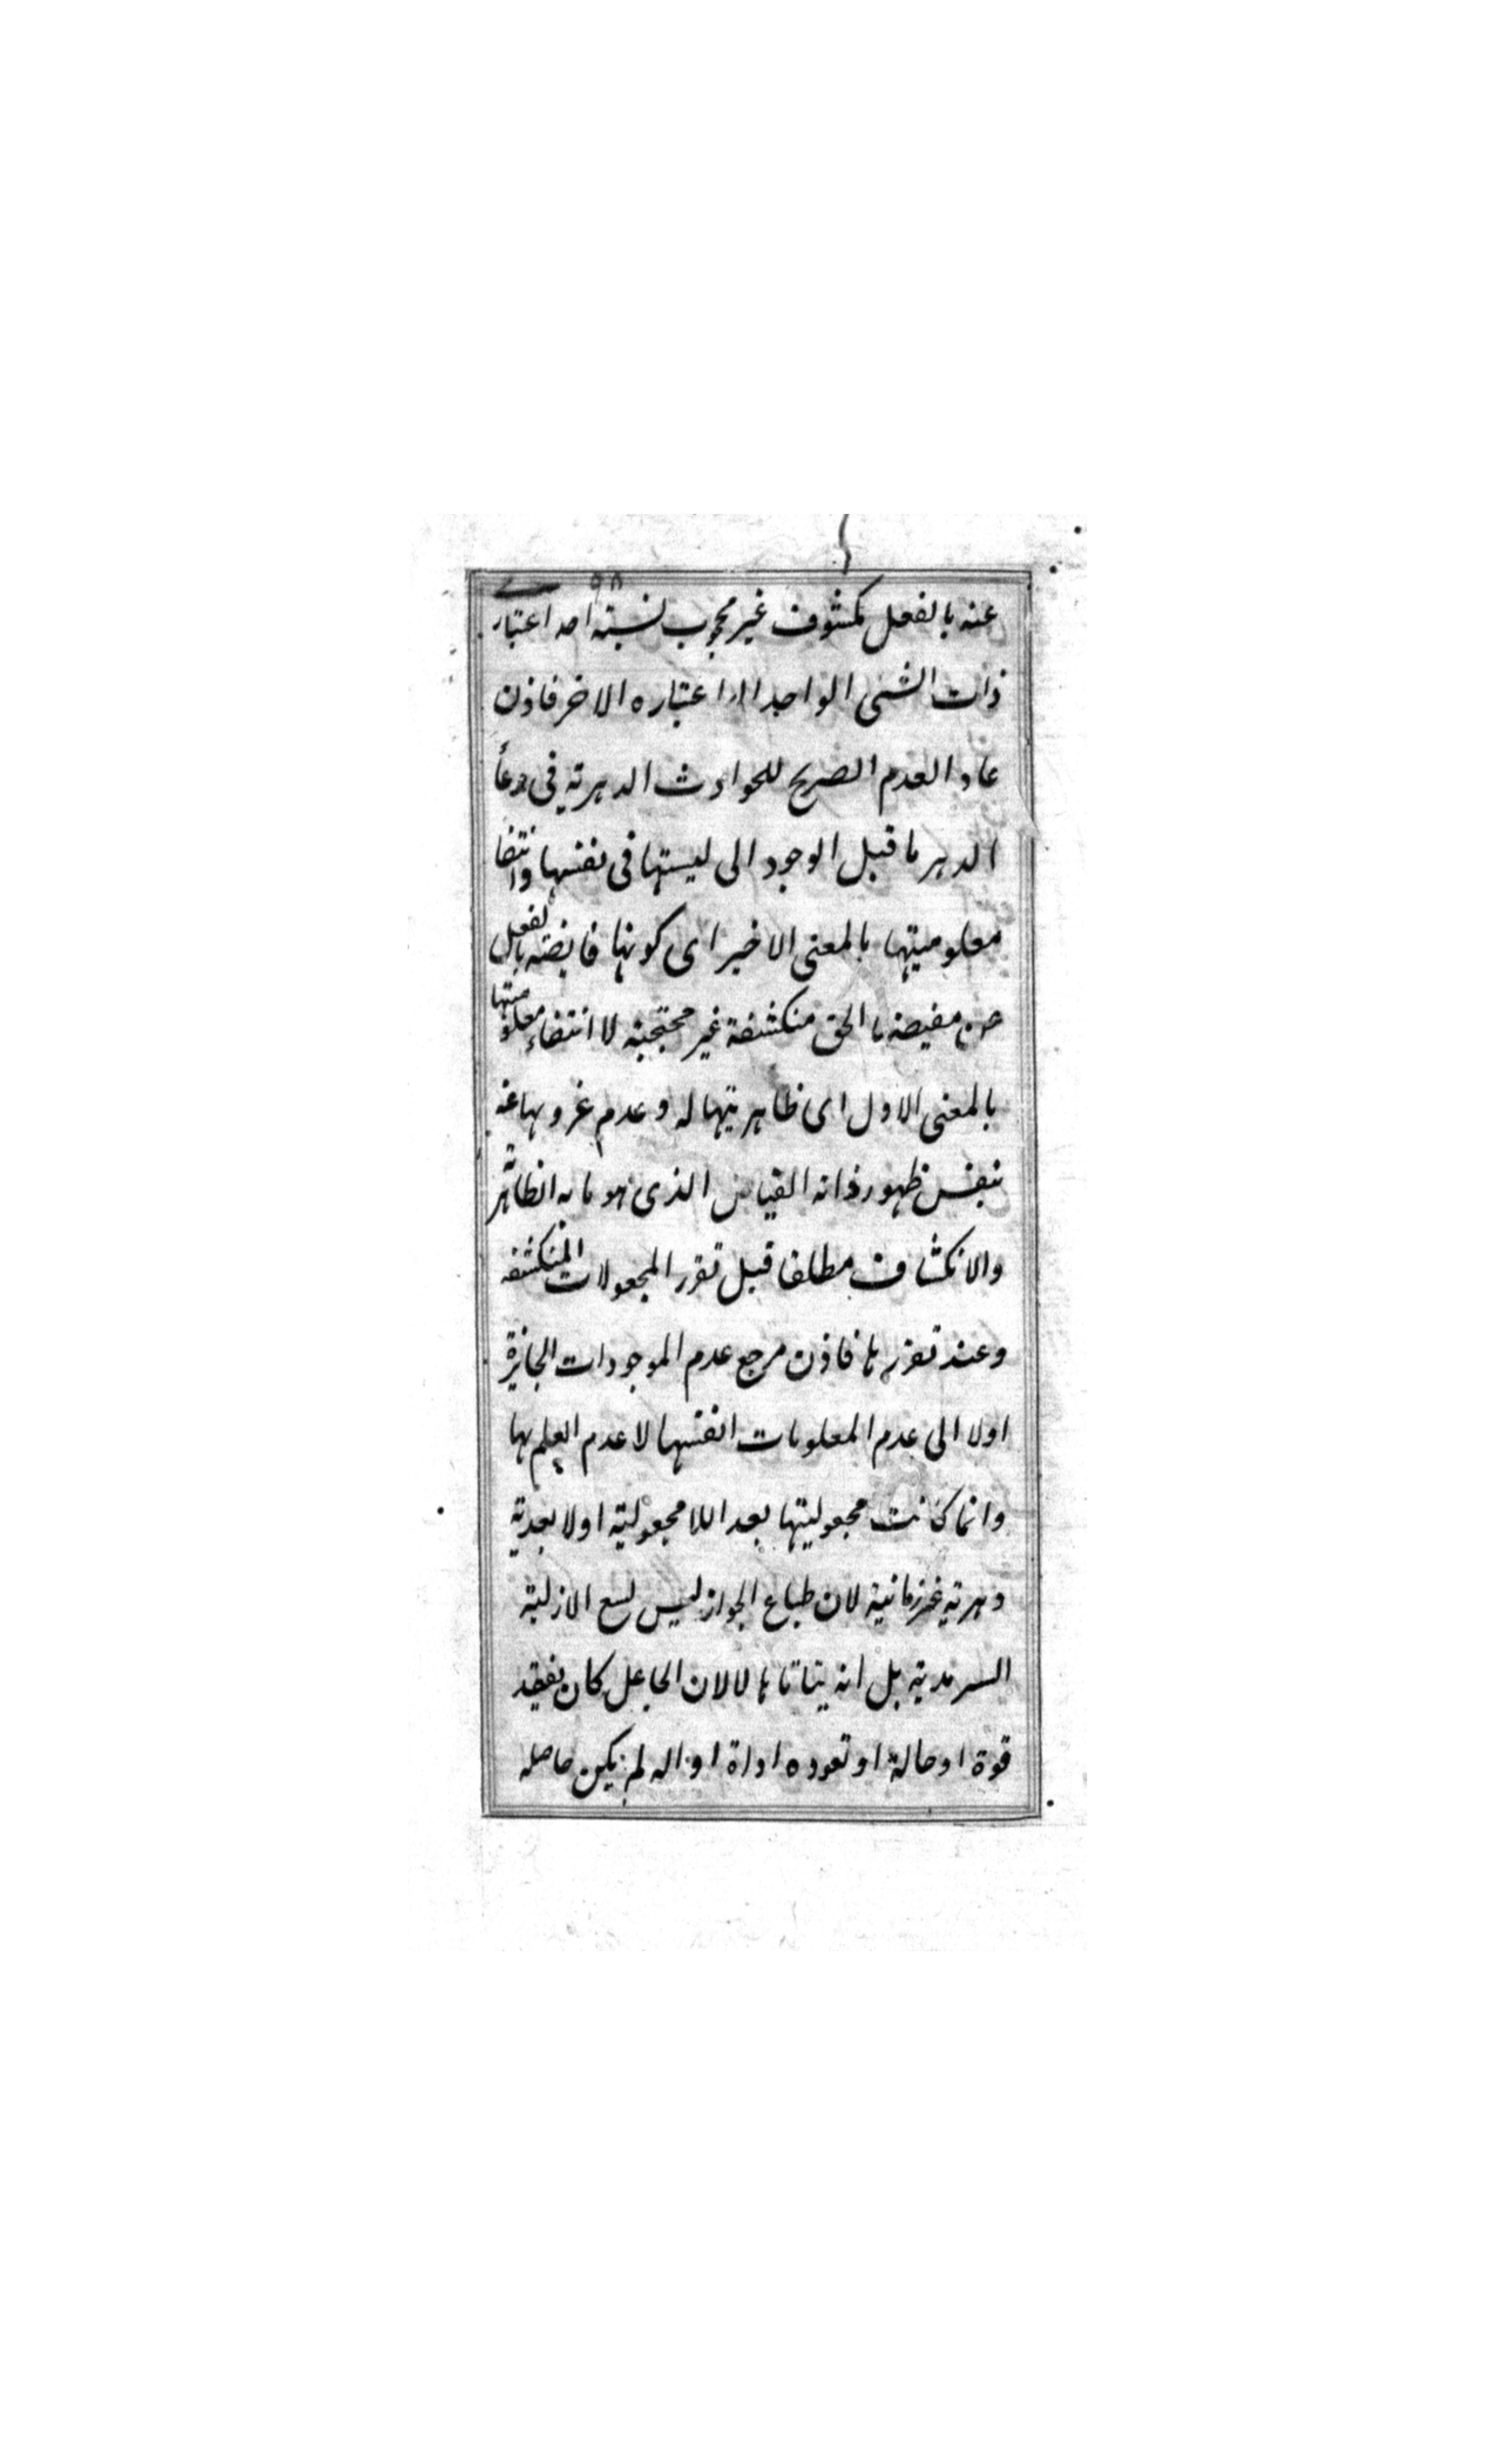 عنه بالفعل مكشوف غير محجوب نسبته احد اعتبار
ذات الشئ الواحد الى اعتباره الاخر فاذن
عاد العدم الصريح للحوادث الدهرية فى وعأ
الدهر ما قبل الوجود الى ليستها فى نفسها وانتفا
معلوميتها بالمعنى الاخير اى كونها فايضته بالفعل
عن مفيضها الحق منكشفة غير محتجبة لا انتفاء معلوميتها
بالمعنى الاول اى ظاهريتها له وعدم عزوبها عنه
بنفس ظهور ذاته الفياض الذى هو ما به الظاهرية
والانكشاف مطلقا قبل تقرر المجعولات المنكشفه
وعند تقررها فاذن مرجع عدم الموجودات الجايزة
اولا الى عدم المعلومات انفسها لا عدم العلم بها
وانما كانت مجعوليتها بعد اللامجعولية اولا بعدية
دهرية غير زمانية لان طباع الجواز ليس لسع الازلية
السرمدية بل انه يتاباها لا لان الجاعل كان يفقد
قوة او حالة او تعوده اداة او اله لم يكن حاصله